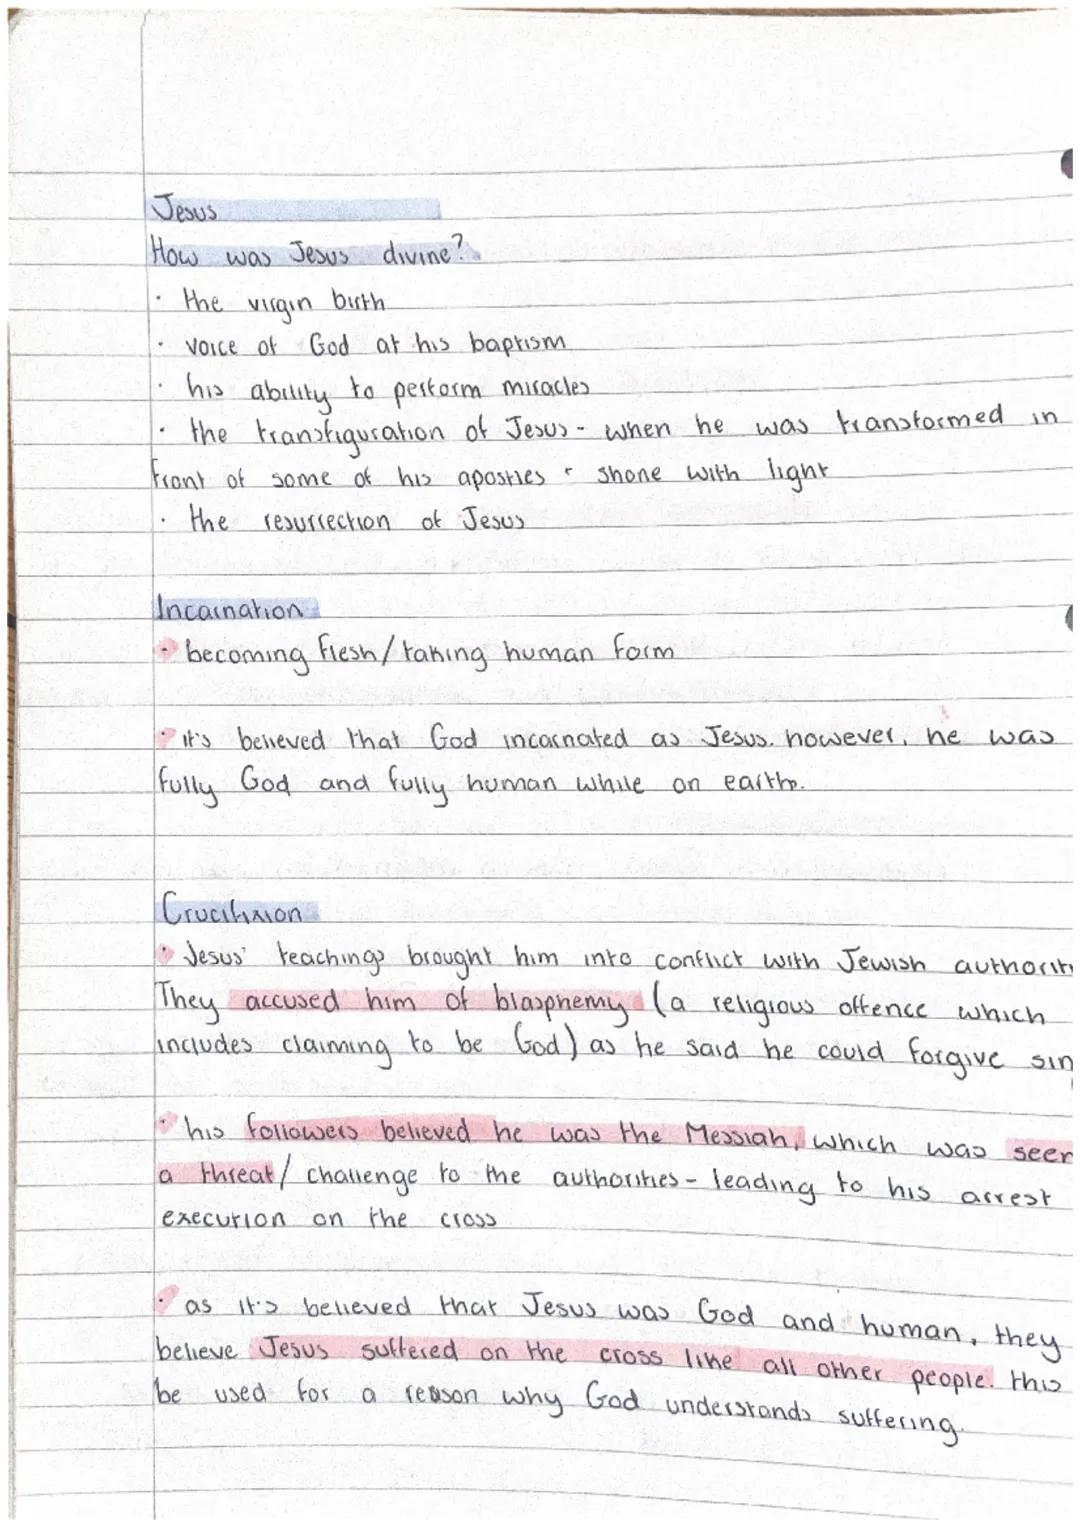 Jesus
How was Jesus divine?
· the virgin birth
· voice of God at his baptism
· his ability to perform miracles
· the transfiguration of Jesus - when he was transformed in
front of some of his apostles · shone with light
· the resurrection of Jesus
Incarnation
· becoming flesh/taking human form
· it's believed that God incarnated as Jesus. however, he was
fully God and fully human while on earth.
Crucifixion
· Jesus' teachings brought him into conflict with Jewish authorit
They accused him of blasphemy (a religious offence which
includes claiming to be God) as he said he could forgive sin
· his followers believed he was the Messiah, which was seen
a threat/challenge to the authorities - leading to his arrest
execution on the cross
· as it's believed that Jesus was God and human, they
believe Jesus suffered on the cross like all other people. this
be used for a reason why God understands suffering.